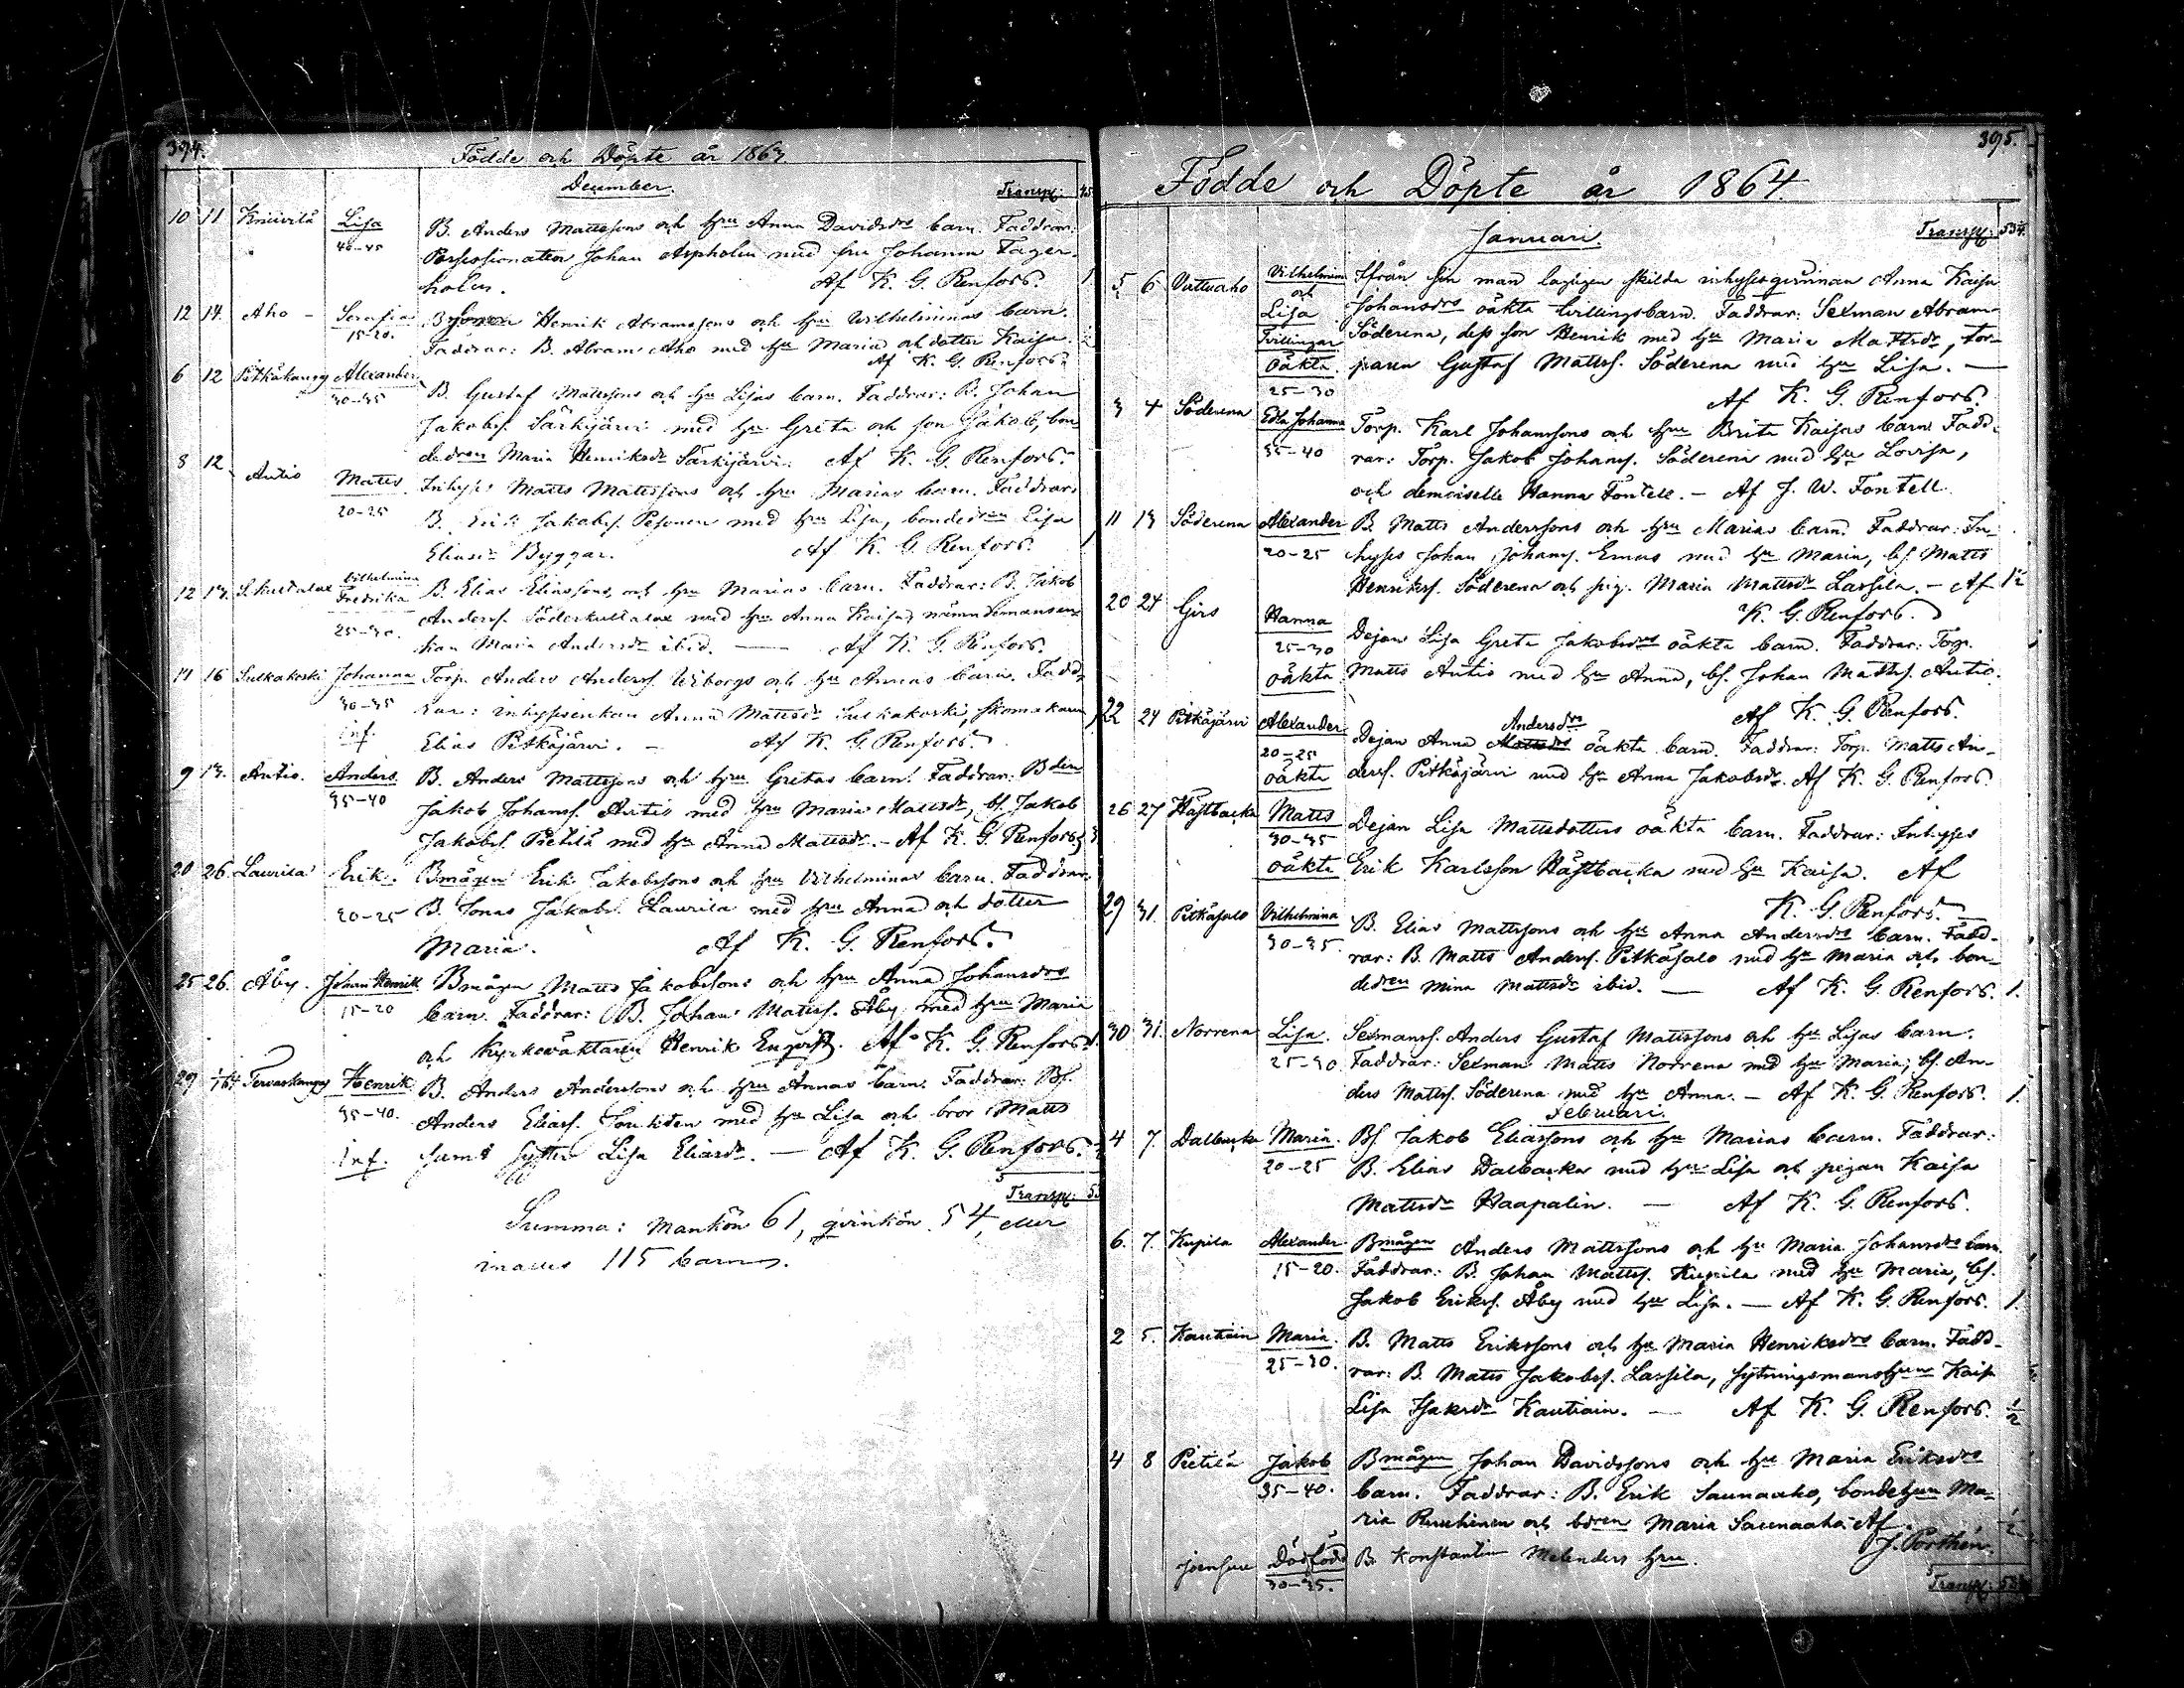 394.
Födde och Döpte år 1863.
December.
Transp:
10 11 Knuvilä Lisa B. Anders Mattssons och hru Anna Davidsdrs barn. Faddrar:
40-45 Possessionaten Johan Aspholm med fru Johanna Fager-
holm. Af K. G. Renfors. 1
12 14. Aho - Serafia Henrik Abramssons och hru Wilhelminas barn.
15-20. Faddrar: B. Abram Aho med hu Maria och dotter Kaisa.
Af K. G. Renfors.
6 12 Pitkäkangs Alexander B. Gustaf Mattssons och hru Lisas barn. Faddrar: B. Johan
30-35 Jakobs. Särkijärvi med hu Greta och son Jakob, bon
dedren Maria Henriksdr Särkijärvi. Af K. G. Renfors.
8 12 Autio Matts Inhyses Matts Mattssons och hru Marias barn. Faddrar:
20-25 B. Erik Jakobss. Pesonen med hu Lisa, bondedren Lisa
Eliasdr Byggar. Af K. G. Renfors. 1
12 13. S. Kultalax Vilhelmina
Fredrika B. Elias Eliassons och hru Marias barn. Faddrar: B. Jakob
25-30. Anderss. Söderkultalax med hru Anna Kaisa, nämndemansen-
kan Maria Andersdr ibid. — Af K. G. Renfors.
14 16 Sulkakoski Johanna Torp. Anders Anderss. Wiborgs och hu Annas barn. Fadd-
30-35 rar: inhysesenkan Anna Mattsdr Sulkakoski, skomakaren
inf. Elias Pitkäjärvi. - Af K. G. Renfors.
9 13. Autio. Anders B. Anders Mattssons och hru Gretas barn. Faddrar: Bden
35-40 Jakob Johanss. Autio med hru Maria Mattsdr, bs. Jakob
Jakobss. Pietilä med hu Anna Mattsdr. - Af K. G. Renfors.
20 26. Laurila Erik. Bmågen Erik Jakobssons och hru Vilhelminas barn. Faddrar:
20-25 B. Jonas Jakobs. Laurila med hru Anna och dotter
Maria. Af K. G. Renfors.
25 26. Åby. Johan Henrik Bmågen Matts Jakobssons och hru Anna Johansdrs
15-20 barn. Faddrar: B. Johan Mattss. Åby med hru Maria
och Kyrkovaktaren Henrik Enqvist. Af K. G. Renfors. 1.
29 1/1 64 Tervaskangs Henrik B. Anders Anderssons och hru Annas barn. Faddrar: Bs.
35-40. Anders Eliass. Tonkten med hu Lisa och bror Matts
inf. samt syster Lisa Eliasdr. — Af K. G. Renfors.
Transp: 53
Summa: mankön 61, qvinkön 54, eller
inalles 115 barn.
395.
Födde och Döpte år 1864.
Januari.
Transp: 534.
5 6 Vuttuaho Vilhelmina Ifrån sin man lagligen skilda inhysesqvinnan Anna Kaisa
och
Lisa Johansdrs oäkta tvillingsbarn. Faddrar: Sexman Abram
Tvillingar Söderena, dess son Henrik med hu Maria Mattsdr, tor-
oäkta paren Gustaf Mattss. Söderena med hu Lisa. —
25-30 Af K. G. Renfors.
3 4 Söderena Edla Johanna Torp. Karl Johanssons och hru Brita Kaisas barn. Fadd-
35-40 rar: Torp. Jakob Johanss. Söderena med hu Lovisa,
och demoiselle Hanna Fontell. - Af J. W. Fontell
11 13 Söderena Alexander B. Matts Anderssons och hru Marias barn. Faddrar: In-
20-25 hyses Johan Johanss. Emas med hu Maria, bs. Matts
Henrikss. Söderena och pig. Maria Mattsdr Lassila. - Af 1/2
K. G. Renfors.
20 24 Girs Hanna
25-30 Dejan Lisa Greta Jakobsdrs oäkta barn. Faddrar: Torp.
oäkta Matts Autio med hu Anna, bs. Johan Mattss. Autio.
Af K. G. Renfors.
22 24 Pitkäjärvi Alexander Dejan Anna Mattsdrs Andersdrs oäkta barn. Faddrar: Torp. Matts An-
20-25
oäkta derss. Pitkäjärvi med hu Anna Jakobsdr. Af K. G. Renfors.
26 27 Hästbacka Matts Dejan Lisa Mattsdotters oäkta barn. Faddrar: Inhyses
30-35
oäkta Erik Karlsson Hästbacka med hu Kaisa. Af
K. G. Renfors.
29 31. Pitkäsalo Vilhelmina B. Elias Mattssons och hu Anna Andersdrs barn. Fadd-
30-35. rar: B. Matts Anderss. Pitkäsalo med hu Maria och bon-
dedren Mina Mattsdr ibid. — Af K. G. Renfors. 1.
30 31. Norrena Lisa. Sexmanss. Anders Gustaf Mattssons och hu Lisas barn.
25-30. Faddrar: Sexman Matts Norrena med hu Maria, bs. An-
ders Mattss. Söderena med hu Anna. - Af K. G. Renfors. 1.
Februari.
4 7. Dalbacka Maria. Bs. Jakob Eliassons och hu Marias barn. Faddrar:
20-25 B. Elias Dalbacka med hu Lisa och pigan Kaisa
Mattsdr Haapalin. — Af K. G. Renfors.
6. 7. Kupila Alexander. Bmågen Anders Mattssons och hu Maria Johansdrs barn.
15-20. Faddrar: B. Johan Mattss. Kupila med hu Maria, bs.
Jakob Erikss. Åby med hu Lisa. — Af K. G. Renfors. 1.
2 5. Kautiain Maria. B. Matts Erikssons och hu Maria Henriksdrs barn. Fadd-
25-30. rar: B. Matts Jakobss. Lassila, sytningsmanshun Kaisa
Lisa Isaksdr Kautiain. — Af K. G. Renfors. 1/2
4 8 Pietilä Jakob Bmågen Johan Davidssons och hu Maria Eriksdrs
35-40. barn. Faddrar: B. Erik Saunaaho, bondehun Ma-
ria Ruuhinen och bdren Maria Saunaaho. Af
J. Porthén.
Joensuu Dödfödd B. Konstantin Melenders hru.
30-35.
Transp: